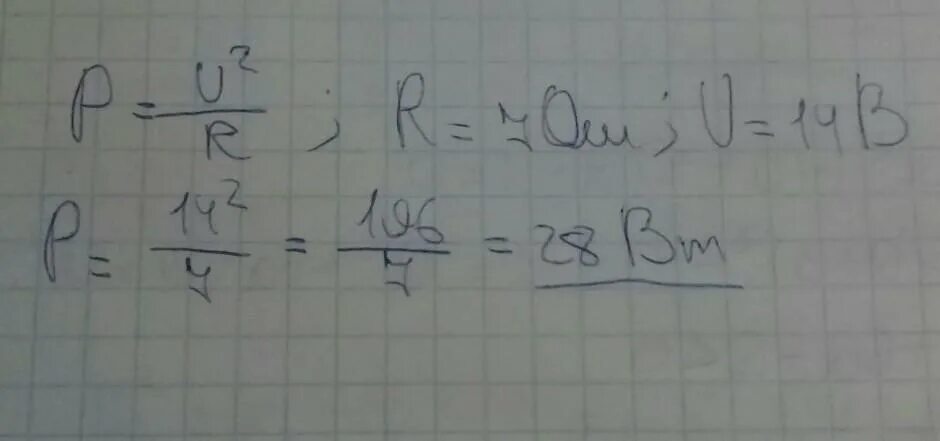 P = U²/R ; R = 7 Ом ; U = 14 В
P = 14²/7 = 196/7 = 28 Вт